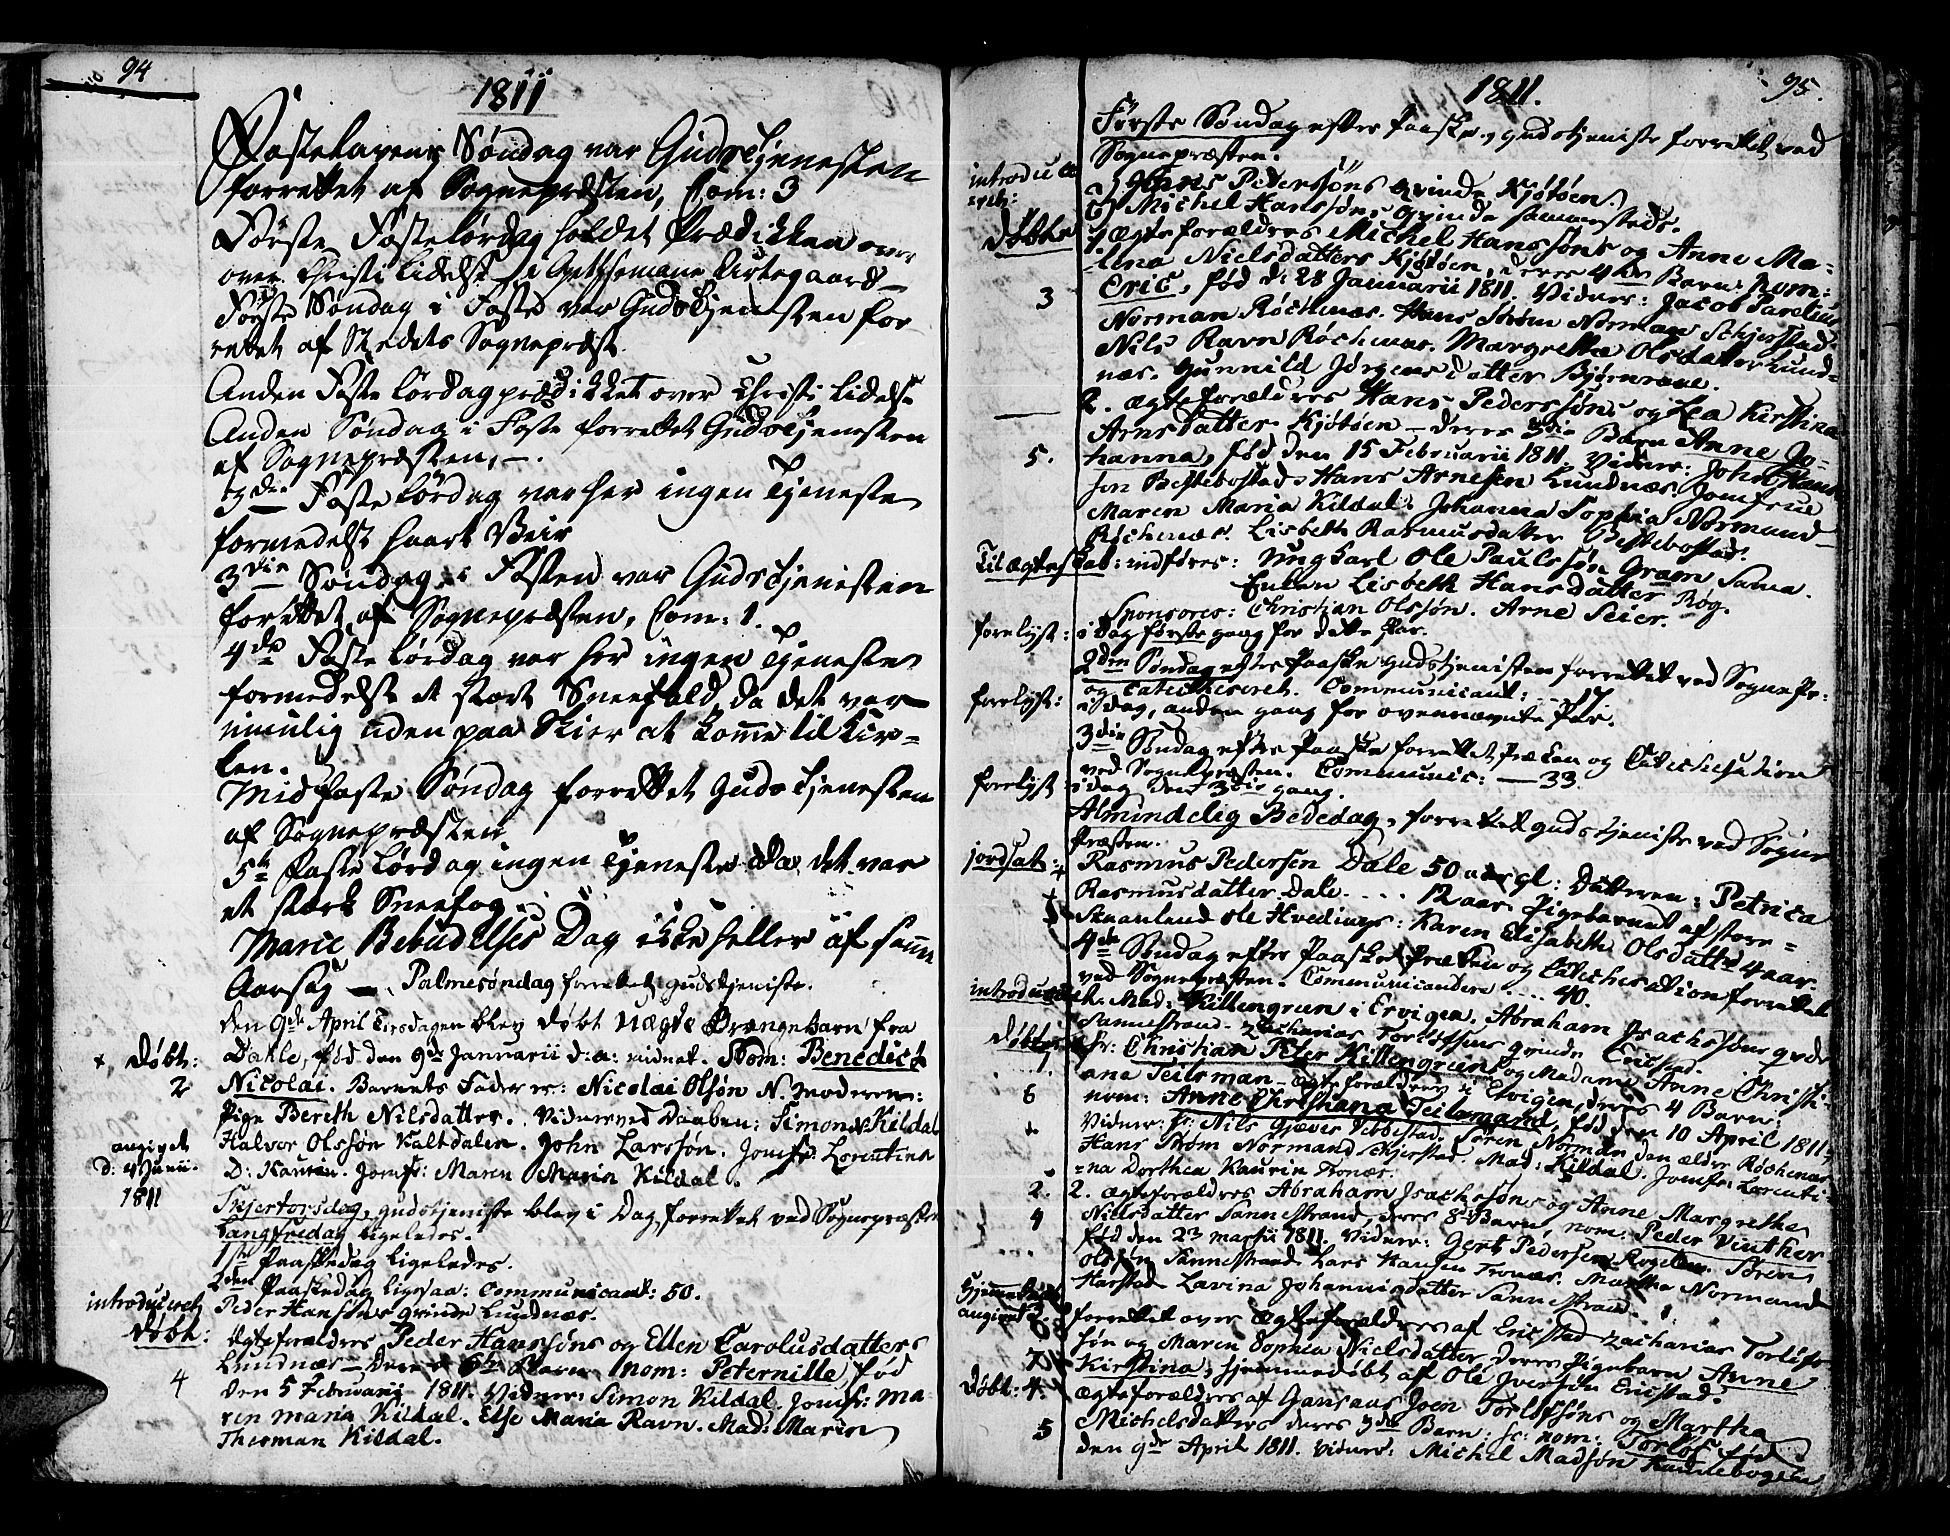 94
1811
Fastelavens Søndag var Gudstjenesten
forrettet af Sognepræsten, Com: 3
Første Faste Lørdag holdet Prædikken over
over Christi Lidelse i Gethsemane Urtegaard
Første Søndag i Faste var Gudstjenesten for
rettet af Stedets Sognepræst
Anden Faste Lørdag prædikket over Christi Lidelse
Anden Søndag i Faste forrettet Gudstjenesten
af Sognepræsten, —.
3die Faste Lørdag var her ingen Tjeneste
formedelst haart Veir
3die Søndag i Fasten var Gudstjenisten
forettet af Sognepræsten, Com: 1.
4de Faste Lørdag var her ingen Tjeneste
formedelst et stort Sneefald, da det var
umulig uden paa Skier at komme til Kir=
ken.
Midfaste Søndag forrettet Gudstjenesten
af Sognepræsten
5te Faste Lørdag ingen Tjeneste da det var
et stark Sneefog.
Mariæ Bebudelses Dag ikke heller af samme
Aarsag —. Palmesøndag forrettet gudstjeniste.
den 9de April Tirsdagen blev døbt uægte Drængebarn fra
+ Døbt: Dahle, fød den 9de Januarii d: a: Nom: Benedict
2 Nicolai. Barnets Fader er: Nicolai Olsøn N. Moderen:
Pige Bereth Nilsdatter. Vidner ved Daaben: Simon Kildal
angivet Halvor Olssøn Kaltdalen. John Larssøn. Jomfr: Lorentina
d: 4 Junii D: Kaurin. Jomfr: Maren Maria Kildal.
1811
Skjertorsdag, gudstjeniste blev i Dag forrettet ved Sognepræsten
Langfredag ligeledes.
1ste Paaskedag ligeledes.
2den Paaskedag ligesaa: Communicant: 50.
introduceret Peder Hanssøns qvinde Lundnæs.
Døbt: Ægteforældres Peder Hanssøns og Ellen Carolusdatters
Lundnæs — deres Barn nom: Peternille fød
4 den 5 Februarii 1811. Vidner: Simon Kildal. Jomfr: Ma
ren Maria Kildal. Else Maria Ravn. Mad: Maren
Thurman Kildal.
95.
1811.
Første Søndag efter Paaske, gudstjeniste forrettet ved
Sognepræsten.
introduce
ret: a) Hans Pederssøns qvinde Kjøtøen.
b) Michel Hanssøns qvinde Sammesteds.
Døbte 1. Ægteforældres Michel Hanssøns og Anne Ma=
=lena Nielsdatters Kjøtøen, deres 4de Barn: Nom:
3 Eric, fød d: 28 Januarii 1811. Vidner: Jacob Parelius
Norman Røchenæs. Hans Strøm Norman Schjerstad
Nils Ravn Røchenæs. Margrethe Olsdatter Lund=
næs. Gunnild Jørgensdatter Bjørnraae.
— 2. Ægteforældres Hans Pederssøns og Lea Kirstina
Arnsdatter Kjøtøen — deres 3die Barn Anne Jo=
5. hanna, fød den 15 Februarii 1811. Vidner: John Hans
sen Bestebostad. Hans Arnesen Lundnæs. Jomfrue
Maren Maria Kildal. Johanna Sophia Normand
Røchenæs. Lisbeth Rasmusdatter Bestebostad.
Til Ægteskab: indføres: Ungkarl Ole Paulssøn Gram Sama.
Enken Lisbeth Hansdatter Røg.
Sponsores: Christian Olssøn. Arne Seier.
forelyst: i Dag første gang for dette Par.
2den Søndag efter Paaske gudstjenisten forrettet ved Sogne Pr:
og Catechiseret. Communicant: — 17
forelyst: i Dag, anden gang for ovennævnte Par.
3die Søndag efter Paaske forrettet Præken og Catechisation
ved Sognepræsten. Communic: — 33.
forelyst i Dag den 3die gang.
Almindelig Bededag, forrettet gudstjeniste ved Sogne
Præsten.
jordsat: 4 Rasmus Pedersen Dale 50 aar gl: Datteren: Petrica
Rasmusdatter Dale .... 12 aar. Pigebarnet af store=
5 Skaanland Ole Hvedings: Karen Elisabeth Olsdatter 4 aar.
4de Søndag efter Paaske Præken og Catechesation forrettet
ved Sognepræsten. Communicantere .... 40.
introduceret. Mad: Killengreen i Ervigen. Abraham Isachssøns qvde
Sannestrand. Zacharias Torløfsøns qvinde Ericstad.
Døbte: 1 Hr: Christian Peter Killengreens og Madame Anne Christi=
ana Teilsman — Ægteforældres i Ervigen, deres 4 Barn:
6 nom: Anne Christiana Teilsmand, fød den 10 April 1811.
+ Vidner: Hr: Nils Gjæver Ibbestad. Søren Normdn den ældre Røchenæs.
Hans Strøm Normand Schjerstad. Mad: Kildal. Jomfr: Lorenti=
=na Dorthea Kaurin Tronæs.
2. 2. Ægteforældres Abraham Isachssøns og Anne Margrethe
4 Nielsdatter Sannestrand, deres 8de Barn, nom: Peder Vinther
fød den 2den Martii 1811. Vidner: Gert Pedersen Rogelen. Søren
Olssøn Sannestrand. Lars Hansen Tronæs. Martha Normand
Harstad. Lavina Johannisdatter Sannestrand.
Hjemmedøbt
angivet 3. forrettet over Ægteforældres af Ericstad Zacharias Torløf=
søn og Maren Sophia Nielsdatter deres Pigebarn Anne
7 Kirstina, hjemmedøbt af Ole Iversøn Ericstad.
Døbt: 4. Ægteforældres af Gansaas Joen Torlofssøns og Martha
5 Michelsdatters deres 3die Barn: nom: Torløf fød
den 9de April 1811. Vidner: Michel Madsøn Kannebogen